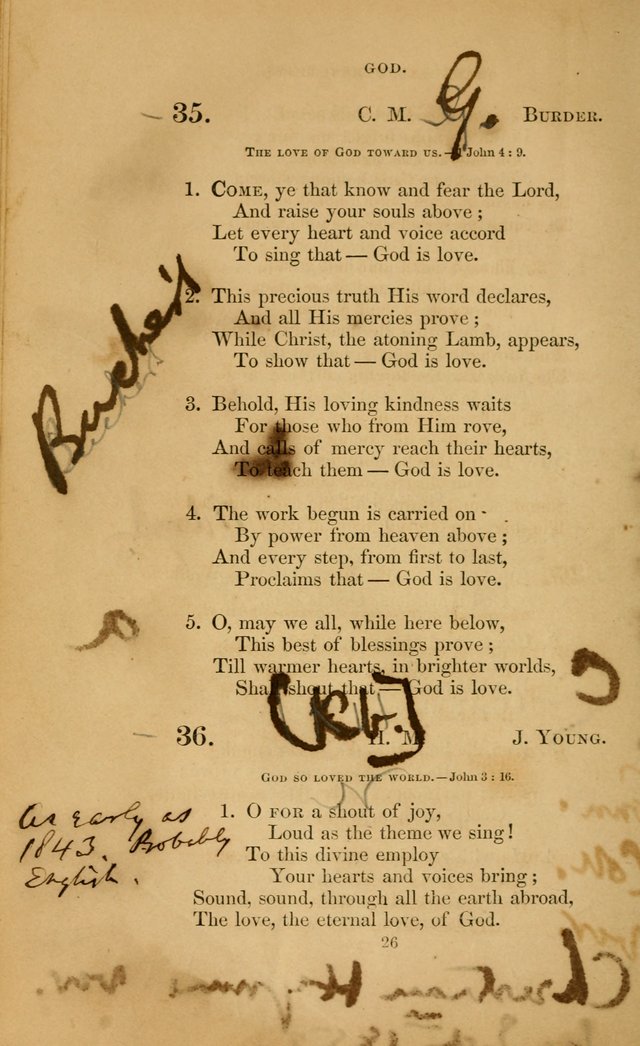 GOD.
35. C. M. G. BURDER.
THE LOVE OF GOD TOWARD US.—1 John 4 : 9.
1. COME, ye that know and fear the Lord,
And raise your souls above ;
Let every heart and voice accord
To sing that — God is love.
2. This precious truth His word declares,
And all His mercies prove ;
While Christ, the atoning Lamb, appears,
To show that — God is love.
3. Behold, His loving kindness waits
For those who from Him rove,
And calls of mercy reach their hearts,
To teach them — God is love.
4. The work begun is carried on
By power from heaven above ;
And every step, from first to last,
Proclaims that — God is love.
5. O, may we all, while here below,
This best of blessings prove ;
Till warmer hearts, in brighter worlds,
Shall shout that — God is love.
36. H. M. J. YOUNG.
GOD SO LOVED THE WORLD.—John 3 : 16.
1. O FOR a shout of joy,
Loud as the theme we sing !
To this divine employ
Your hearts and voices bring ;
Sound, sound, through all the earth abroad,
The love, the eternal love, of God.
26
As early as
1843. Probably
English.